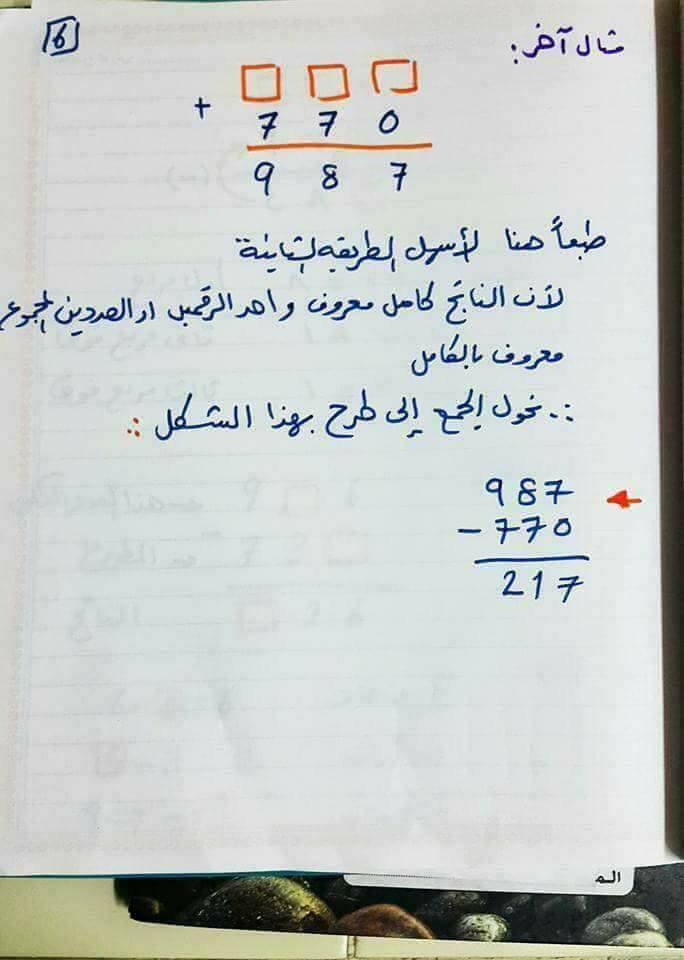 6
مثال آخر:
□ □ □
+ 7 7 0
9 8 7
طبعاً هنا لأسهل الطريقه الثانية
لأن الناتج كامل معروف واحد الرقمين او العددين المجموع
معروف بالكامل
∴ نحول الجمع إلى طرح بهذا الشكل :.
987
-770
217
الـم